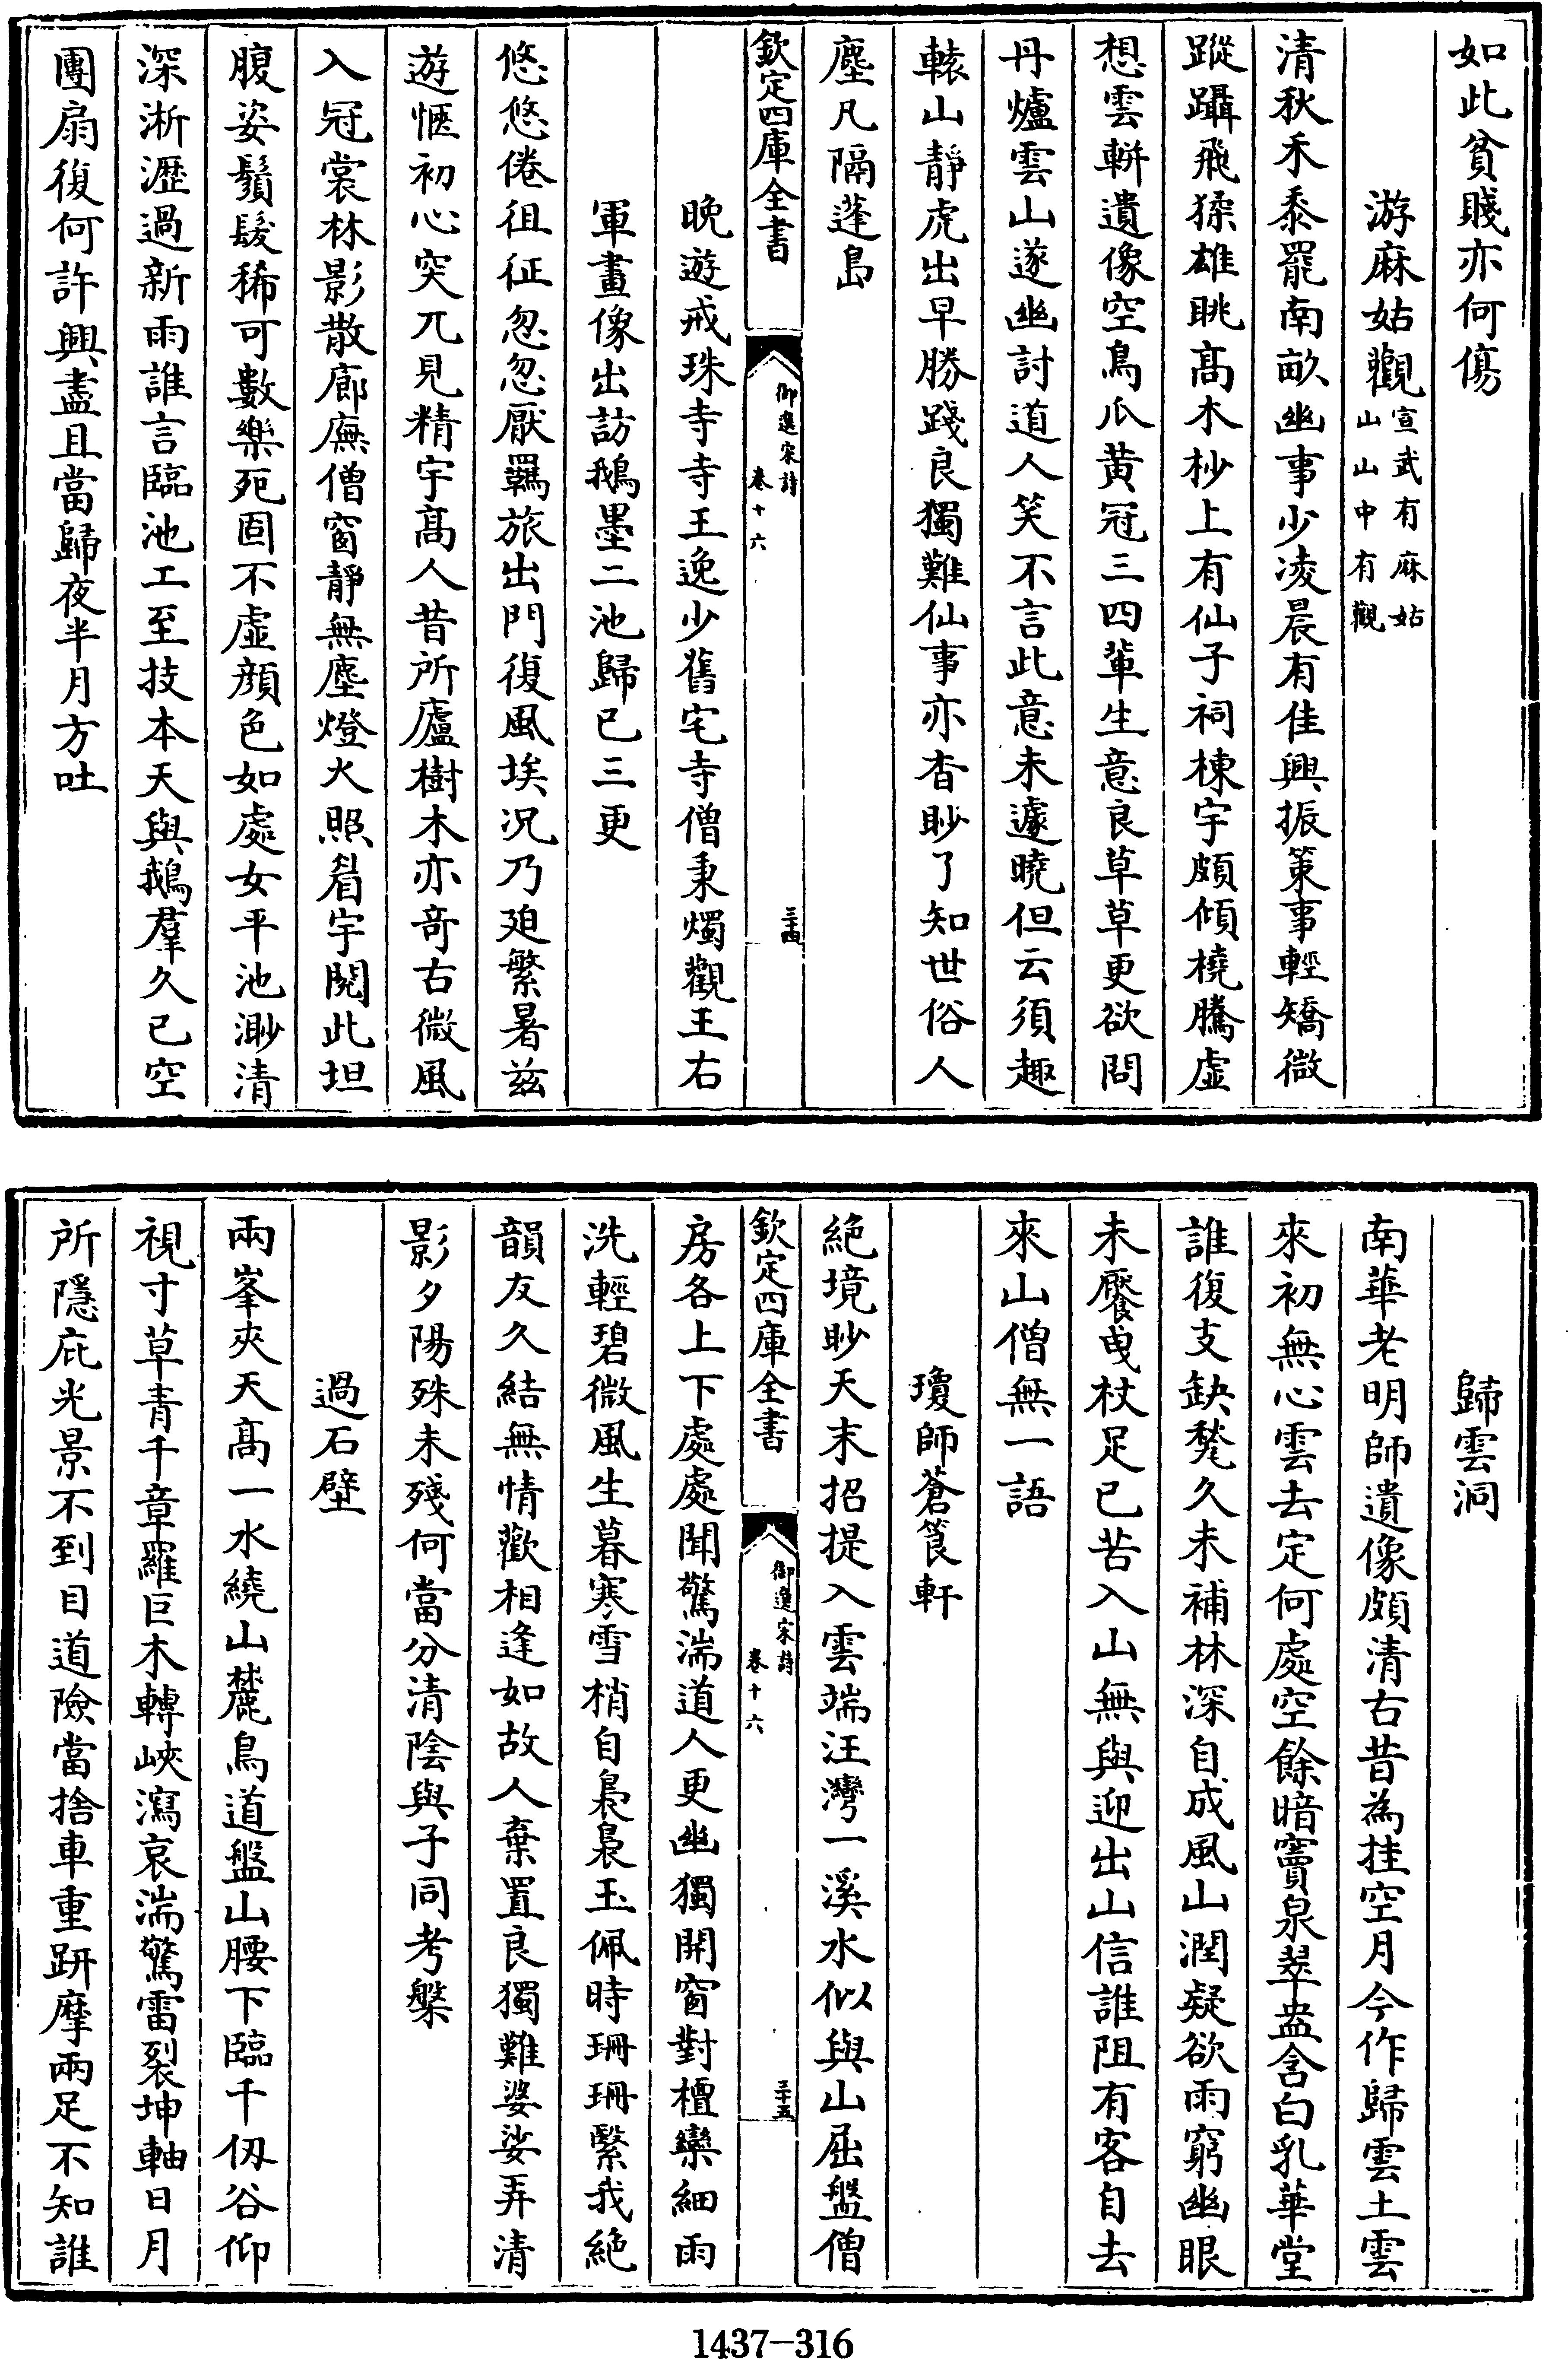 如此貧賤亦何傷
游麻姑觀宣武有麻姑山山中有觀
清秋禾黍罷南畝幽事少凌晨有佳興振策事輕矯微
蹤躡飛猱雄眺髙木杪上有仙子祠棟宇頗傾橈騰虛
想雲軿遺像空鳥爪黄冠三四軰生意良草草更欲問
丹爐雲山遂幽討道人笑不言此意未遽曉但云須趣
轅山靜虎出早勝踐良獨難仙事亦杳眇了知世俗人
塵凡隔蓬島
欽定四庫全書
御選宋詩
卷十六
三十四
晚遊戒珠寺寺王逸少舊宅寺僧秉燭觀王右
軍畫像出訪鵝墨二池歸已三更
悠悠倦徂征忽忽厭羈旅出門復風埃况乃廹繁暑兹
遊愜初心突兀見精宇髙人昔所廬樹木亦竒古微風
入冠裳林影散廊廡僧窗靜無塵燈火照眉宇閱此坦
腹姿鬚髮稀可數樂死固不虛顔色如處女平池渺清
深淅瀝過新雨誰言臨池工至技本天與鵝羣久已空
團扇復何許興盡且當歸夜半月方吐
歸雲洞
南華老明師遺像頗清古昔為挂空月今作歸雲土雲
來初無心雲去定何處空餘暗竇泉翠盎含白乳華堂
誰復支缺甃久未補林深自成風山潤疑欲雨窮幽眼
未饜曵杖足已苦入山無與迎出山信誰阻有客自去
來山僧無一語
瓊師蒼筤軒
絶境眇天末招提入雲端汪灣一溪水似與山屈盤僧
欽定四庫全書
御選宋詩
卷十六
三十五
房各上下處處聞驚湍道人更幽獨開窗對檀欒細雨
洗輕碧微風生暮寒雪梢自裊裊玉佩時珊珊繄我絶
韻友久結無情歡相逢如故人棄置良獨難婆娑弄清
影夕陽殊未殘何當分清陰與子同考槃
過石壁
兩峯夾天髙一水繞山麓鳥道盤山腰下臨千仭谷仰
視寸草青千章羅巨木轉峽瀉哀湍驚雷裂坤軸日月
所隱庇光景不到目道險當捨車重趼摩兩足不知誰
1437-316